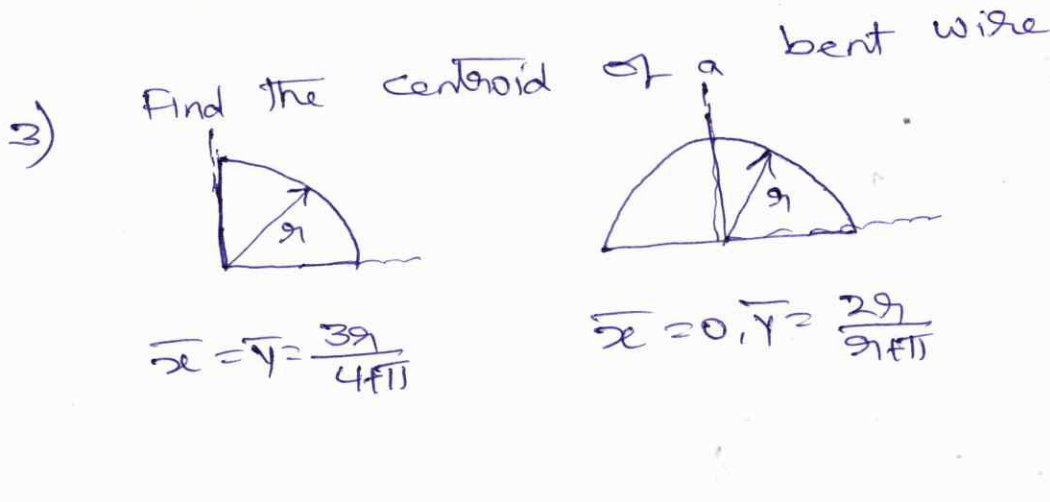 3) Find the centroid of a bent wire
r
r
x̄ = ȳ = 3r/4+π
x̄ = 0, ȳ = 2r/r+π